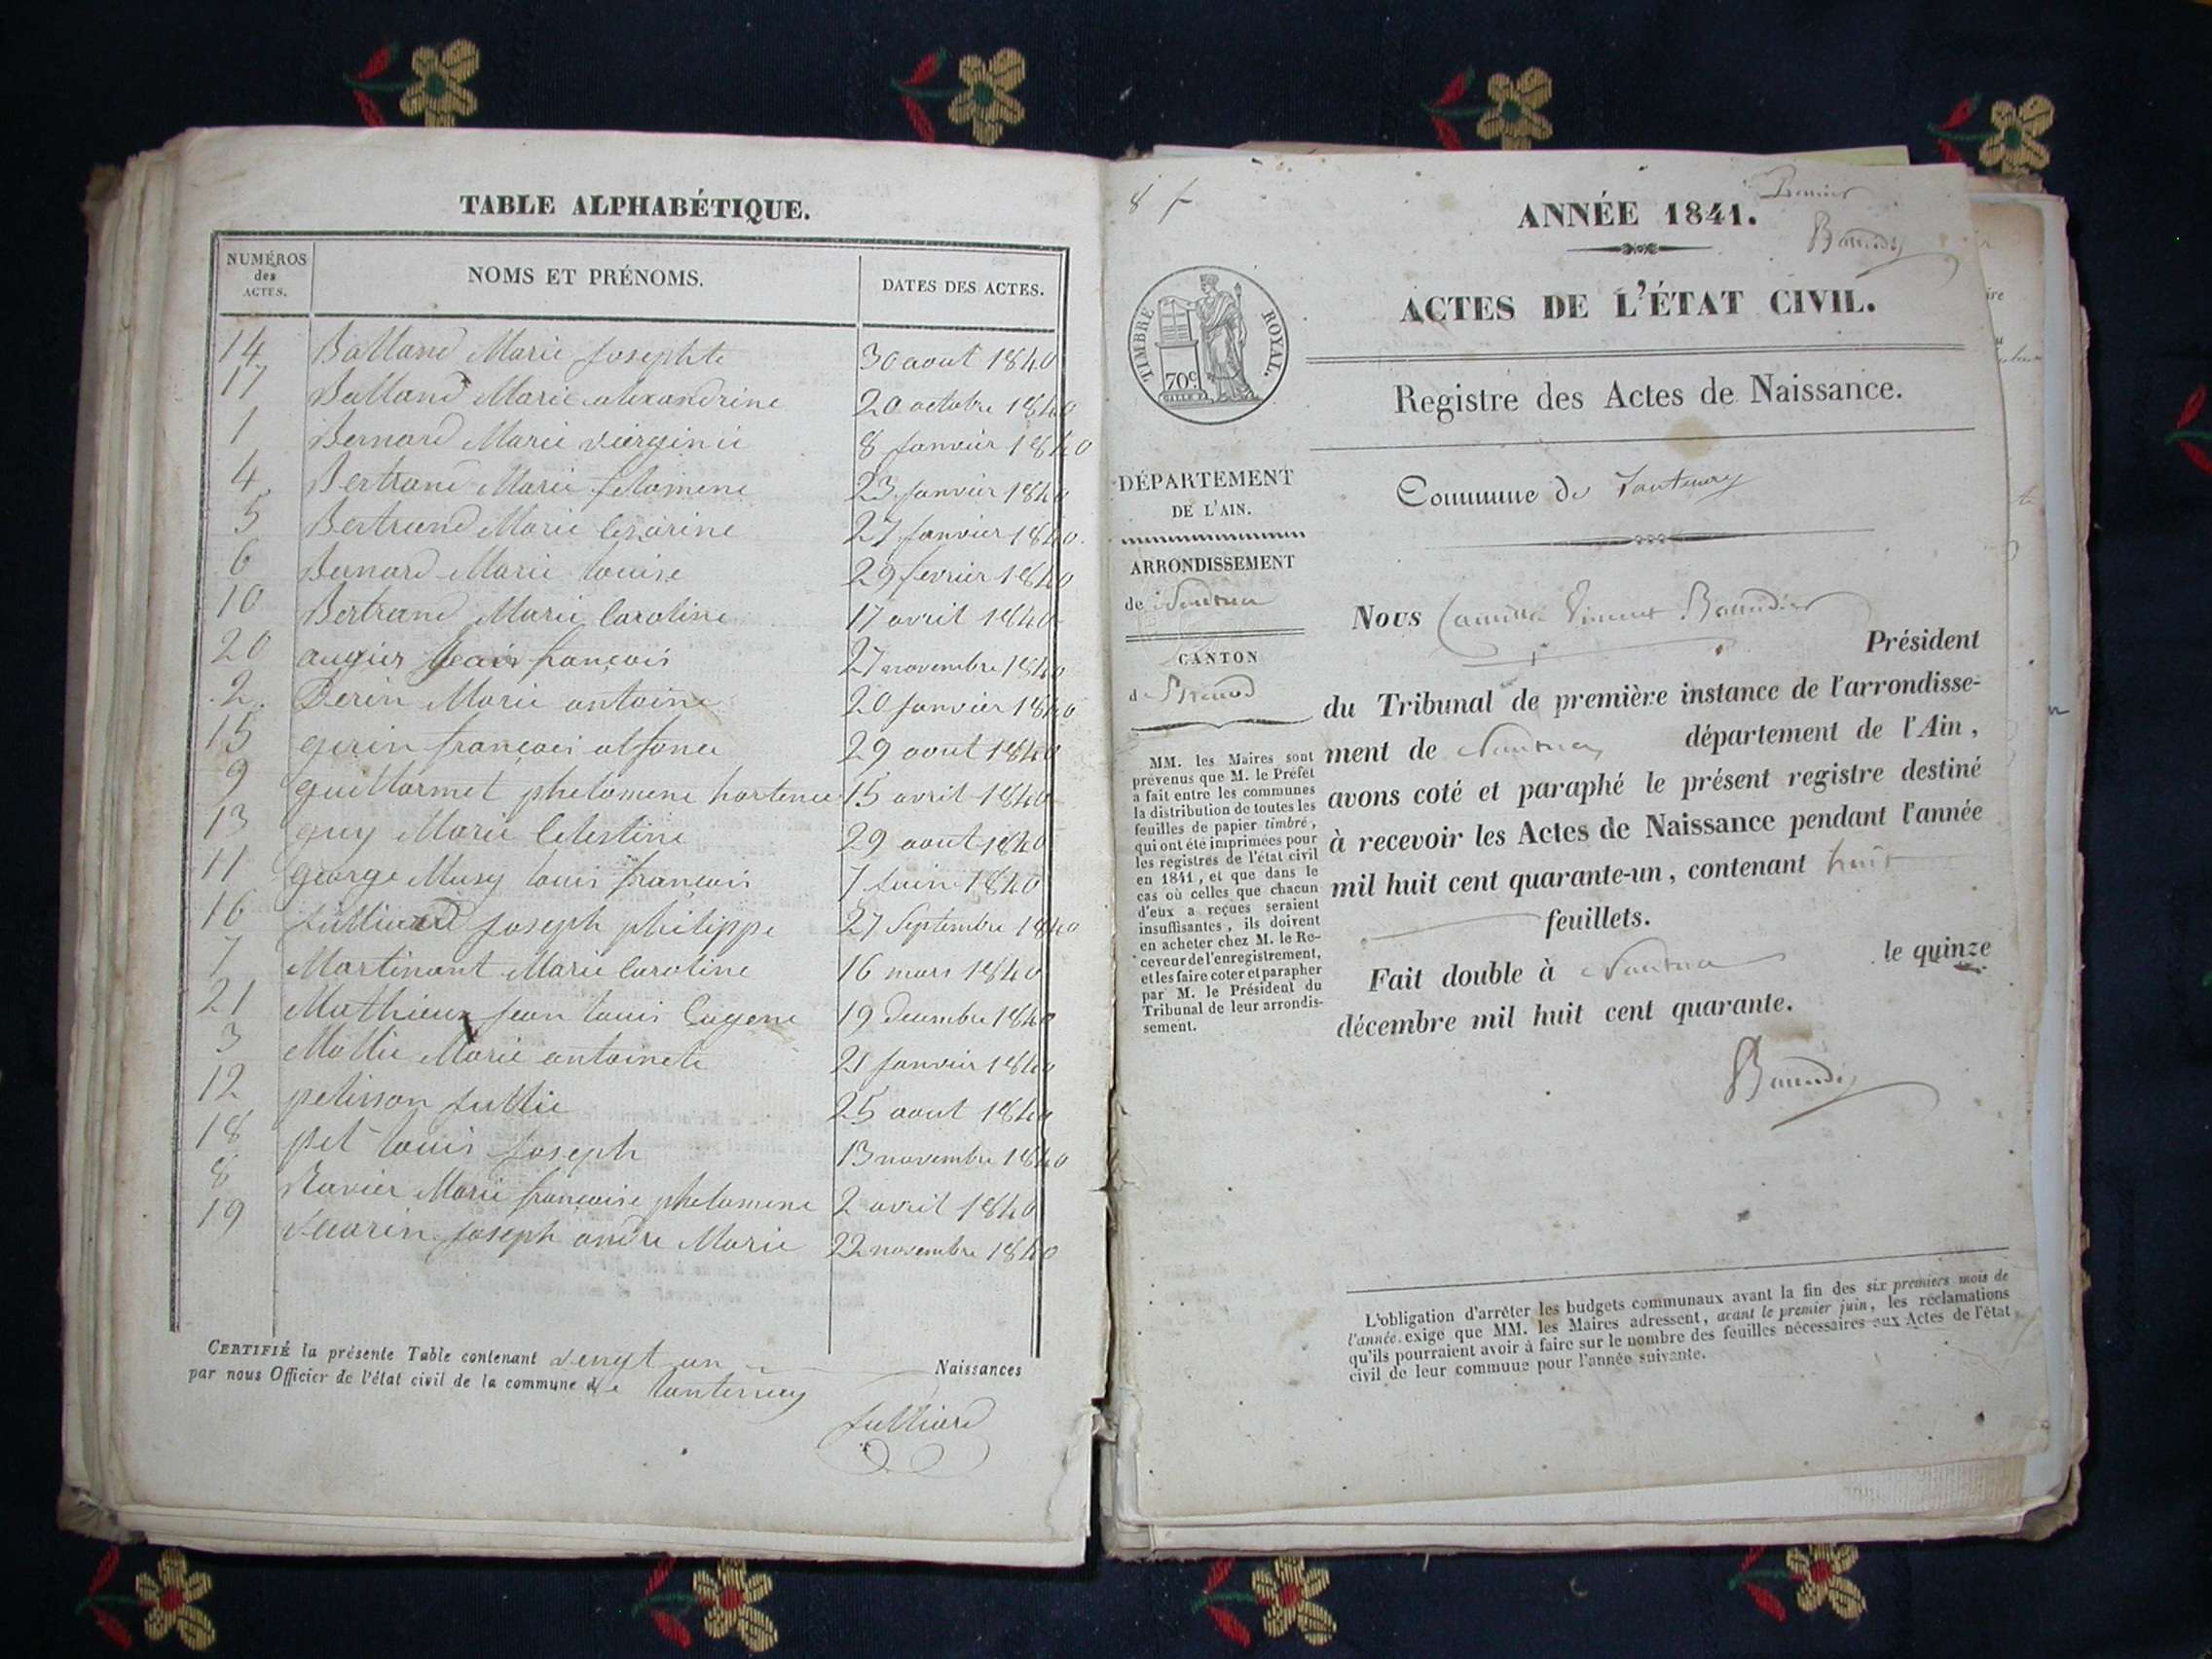 TABLE ALPHABÉTIQUE.
NUMÉROS
des
ACTES.
NOMS ET PRÉNOMS.
DATES DES ACTES.
14 Balland Marie Josephte 30 aout 1840
17 Balland Marie alexandrine 20 octobre 1840
1 Bernard Marie viergenie 8 Janvier 1840
4 Bertrand Marie felomene 23 Janvier 1840
5 Bertrand Marie Cesarine 27 Janvier 1840
6 Bernard Marie louise 29 fevrier 1840
10 Bertrand Marie Caroline 17 avril 1840
20 augier Jean françois 27 novembre 1840
2 Derin Marie antoine 20 Janvier 1840
15 gerin françois alfonce 29 aout 1840
9 guillermet phelomene hortence 15 avril 1840
13 guy Marie Celestine 29 aout 1840
11 george Musy louis françois 7 Juin 1840
16 Julliard Joseph philippe 27 Septembre 1840
7 Martinant Marie Caroline 16 mars 1840
21 Mathieux Jean louis Eugene 19 decembre 1840
3 Mollie Marie antoinete 21 Janvier 1840
12 pelisson Jullie 25 aout 1840
18 pet louis Joseph 13 novembre 1840
8 Ravier Marie françoise phelomene 2 avril 1840
19 Joseph andre Marie 22 novembre 1840
CERTIFIÉ la présente Table contenant vengt un Naissances
par nous Officier de l'état civil de la commune de lantenay
Julliard
8 f
Premier
ANNÉE 1841.
Baudier
ACTES DE L'ÉTAT CIVIL.
TIMBRE ROYAL.
70c
Registre des Actes de Naissance.
DÉPARTEMENT
DE L'AIN.
ARRONDISSEMENT
de Nantua
CANTON
de Brenod
MM. les Maires sont
prévenus que M. le Préfet
a fait entre les communes
la distribution de toutes les
feuilles de papier timbré,
qui ont été imprimées pour
les registres de l'état civil
en 1841, et que dans le
cas où celles que chacun
d'eux a reçues seraient
insuffisantes, ils doivent
en acheter chez M. le Re-
ceveur de l'enregistrement,
et les faire coter et parapher
par M. le Président du
Tribunal de leur arrondis-
sement.
Commune de Lantenay
Nous Camille Vincent Baudier
Président
du Tribunal de première instance de l'arrondisse-
ment de Nantua, département de l'Ain,
avons coté et paraphé le présent registre destiné
à recevoir les Actes de Naissance pendant l'année
mil huit cent quarante-un, contenant huit
feuillets.
Fait double à Nantua le quinze
décembre mil huit cent quarante.
Baudier
L'obligation d'arrêter les budgets communaux avant la fin des six premiers mois de
l'année, exige que MM. les Maires adressent, avant le premier juin, les réclamations
qu'ils pourraient avoir à faire sur le nombre des feuilles nécessaires aux Actes de l'état
civil de leur commune pour l'année suivante.